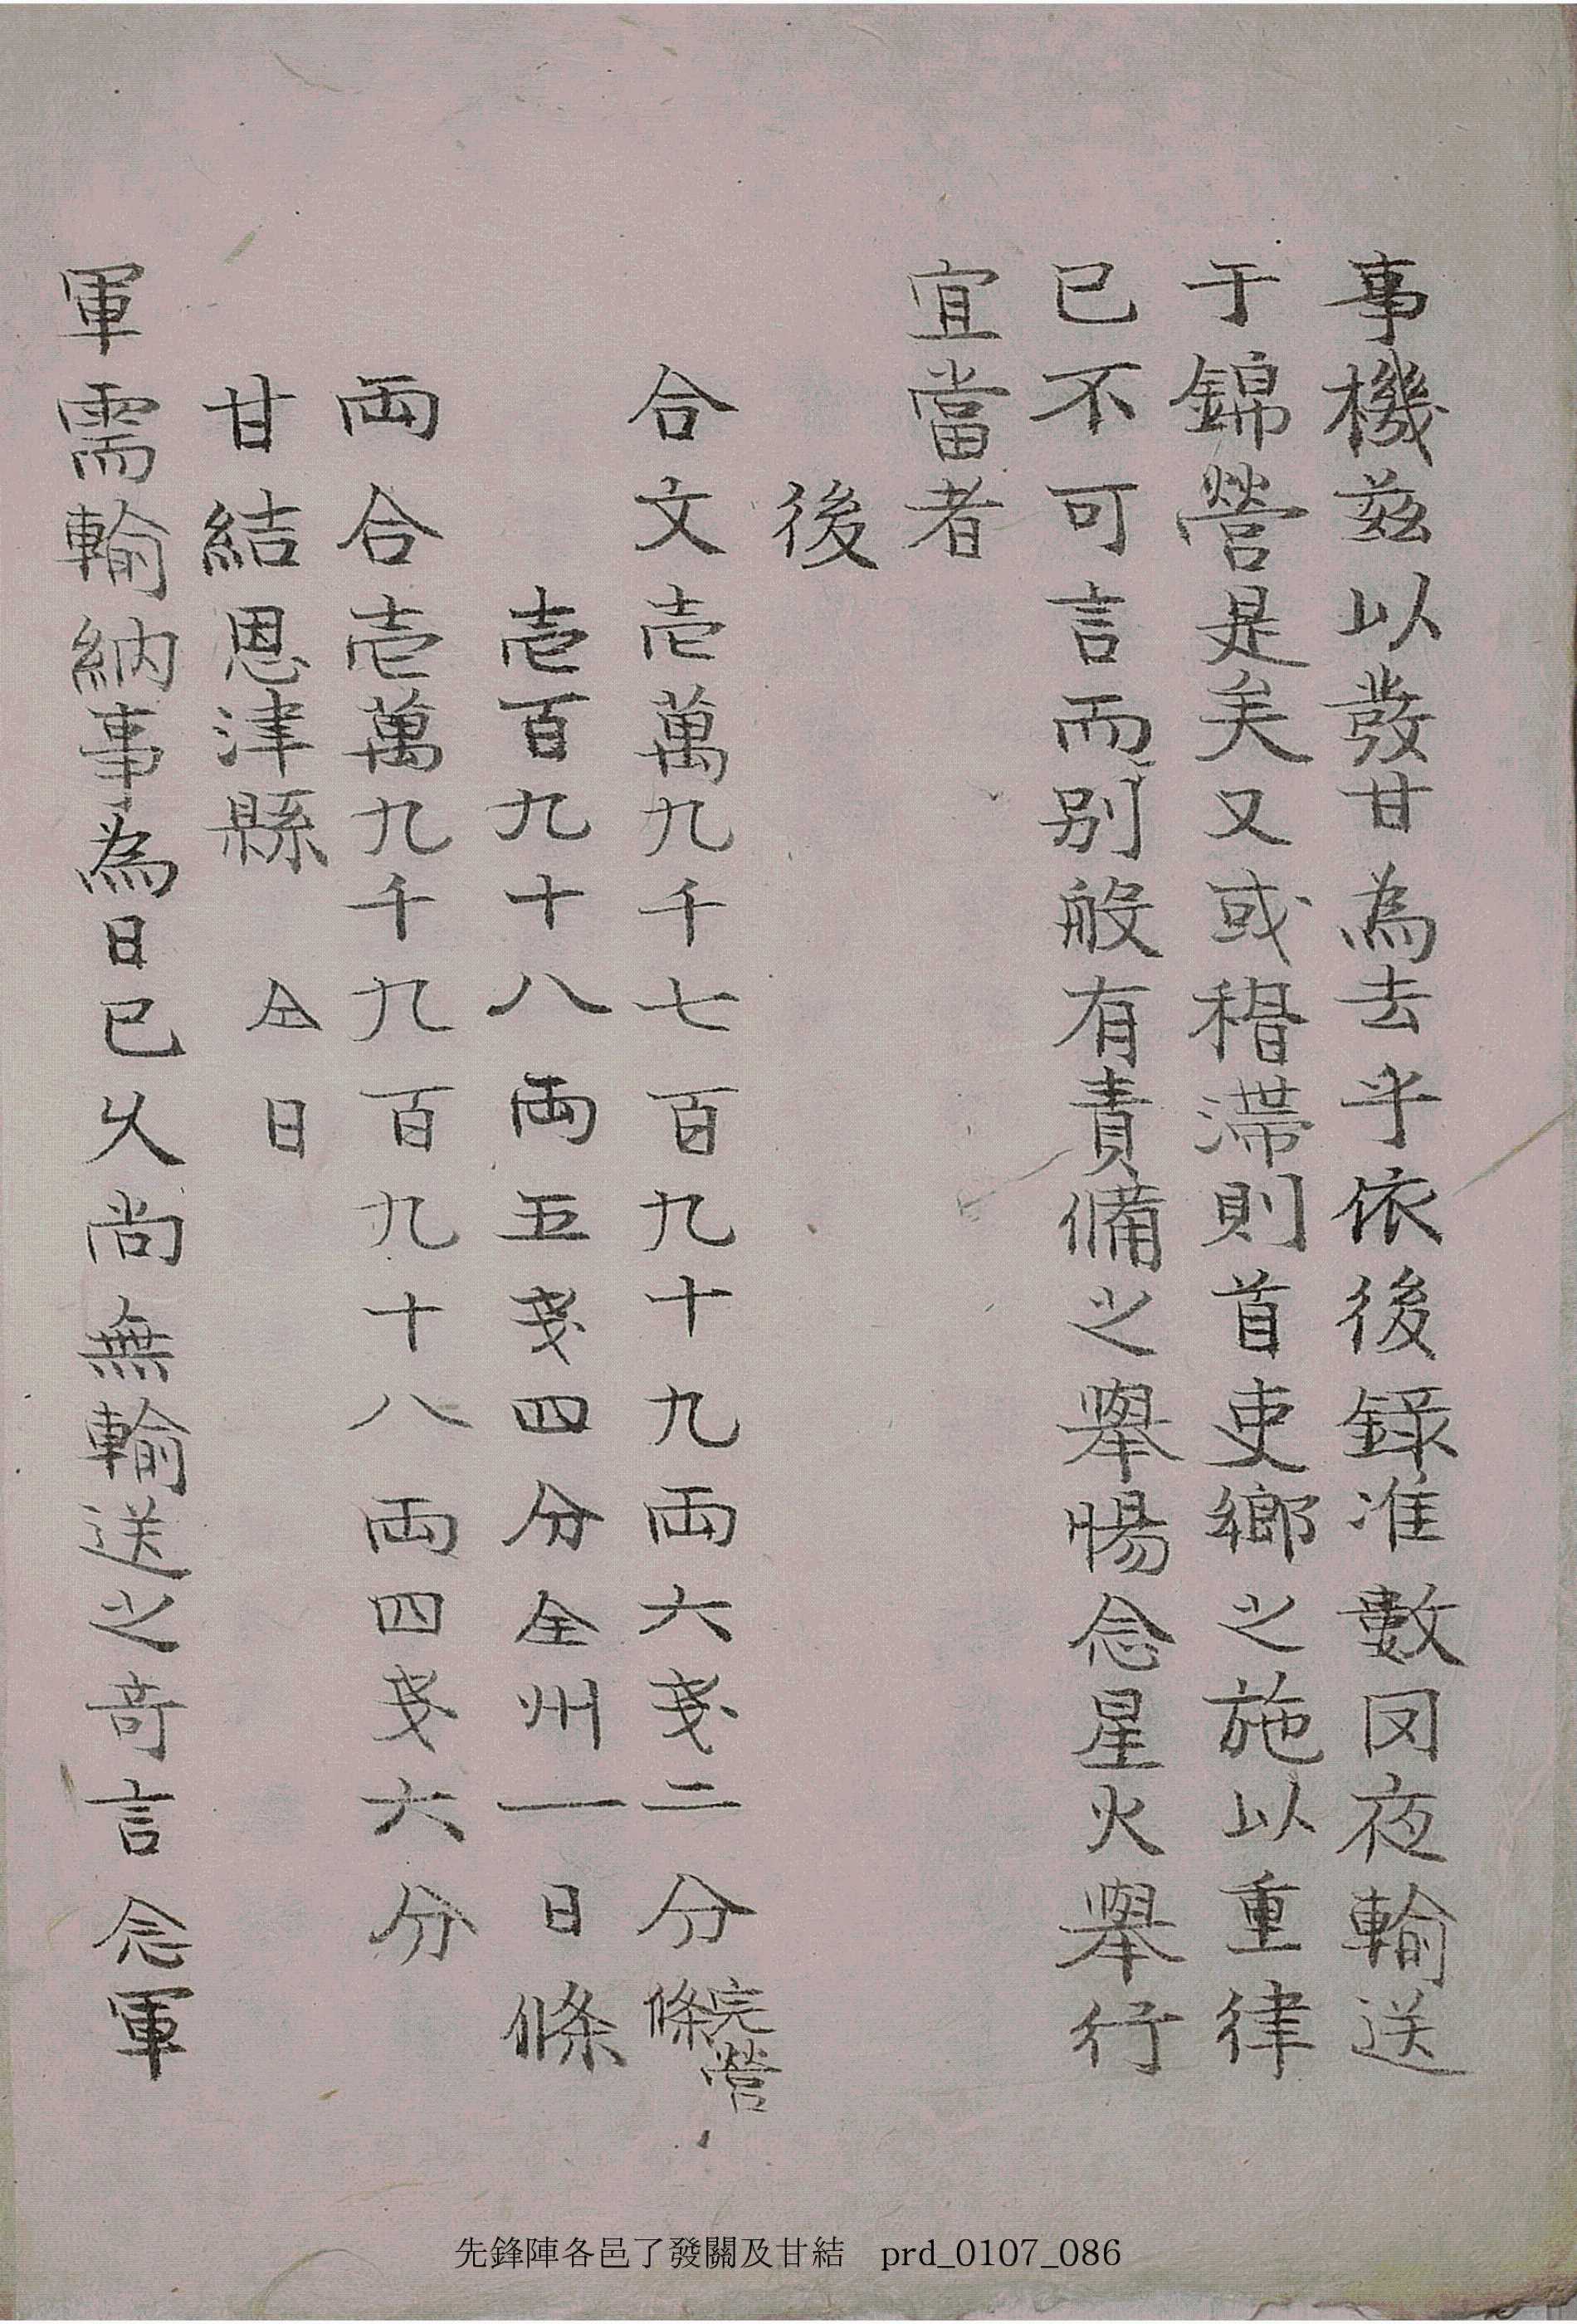 事機玆以發甘爲去乎依後錄准數囘夜輸送
于錦營是矣又或稽滯則首吏鄕之施以重律
已不可言而別般有責備之擧惕念星火擧行
宜當者
後
合文壱萬九千七百九十九両六戔二分完營條
壱百九十八両五戔四分全州一日條
両合壱萬九千九百九十八両四戔六分
甘結恩津縣 仝日
軍需輸納事爲日已久尙無輸送之奇言念軍
先鋒陣各邑了發關及甘結 prd_0107_086